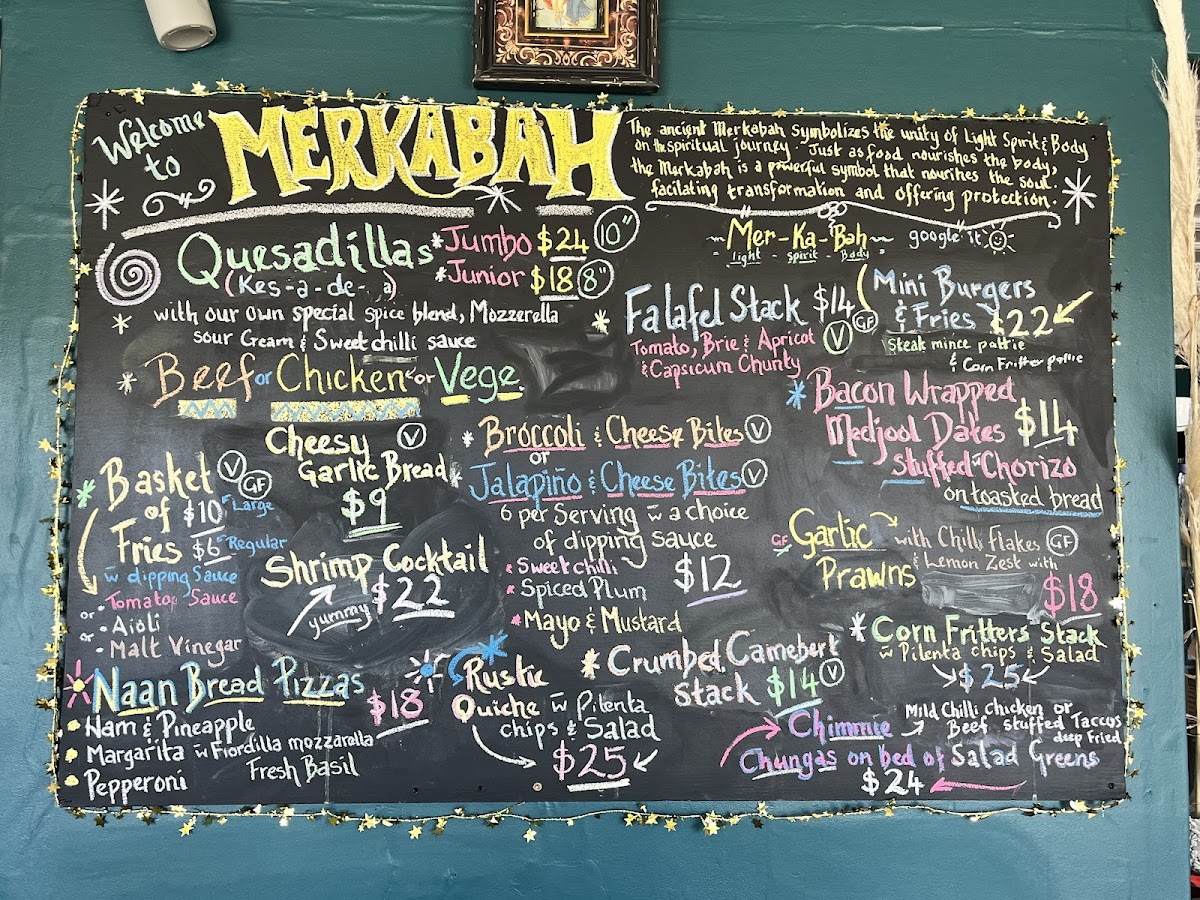 Welcome
to
MERKABAH
The ancient Merkabah symbolizes the unity of Light Spirit & Body
on the spiritual journey. Just as food nourishes the body,
the Merkabah is a powerful symbol that nourishes the soul.
facilating transformation and offering protection.
~Mer-Ka-Bah~ google it
= Light - Spirit - Body =
Quesadillas
(Kes-a-de- a)
*Jumbo $24 10"
*Junior $18 8"
with our own special spice blend, Mozzerella
sour Cream & Sweet chilli sauce
* Beef or Chicken or Vege.
Falafel Stack $14 V GF
Tomato, Brie & Apricot
& Capsicum Chunty
Mini Burgers
& Fries $22
Steak mince pattie
& Corn Fritter pattie
* Bacon Wrapped
Medjool Dates $14
stuffed w Chorizo
on toasted bread
* Basket V GF
of $10 Large
Fries $6 Regular
w dipping Sauce
or • Tomato Sauce
or • Aioli
or • Malt Vinegar
Cheesy V
Garlic Bread
$9
Shrimp Cocktail
yummy $22
* Broccoli & Cheese Bites V
or
* Jalapiño & Cheese Bites V
6 per Serving w a choice
of dipping sauce
* Sweet chilli $12
* Spiced Plum
* Mayo & Mustard
GF Garlic Prawns
with Chilli Flakes GF
& Lemon Zest with
$18
* Corn Fritters Stack
w Pilenta chips & Salad
$25
Naan Bread Pizzas $18
Ham & Pineapple
Margarita w Fiordilla mozzarella
Fresh Basil
Pepperoni
Rustic
Quiche w Pilenta
chips & Salad
$25
* Crumbed Camebert
Stack $14 V
Chimmie
Mild Chilli chicken or
Beef stuffed Taccos
deep Fried
Chungas on bed of Salad Greens
$24